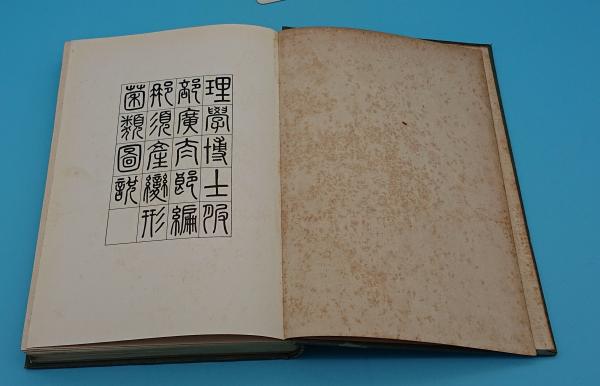 理學博士服
部廣太郎編
那須産變形
菌類圖説